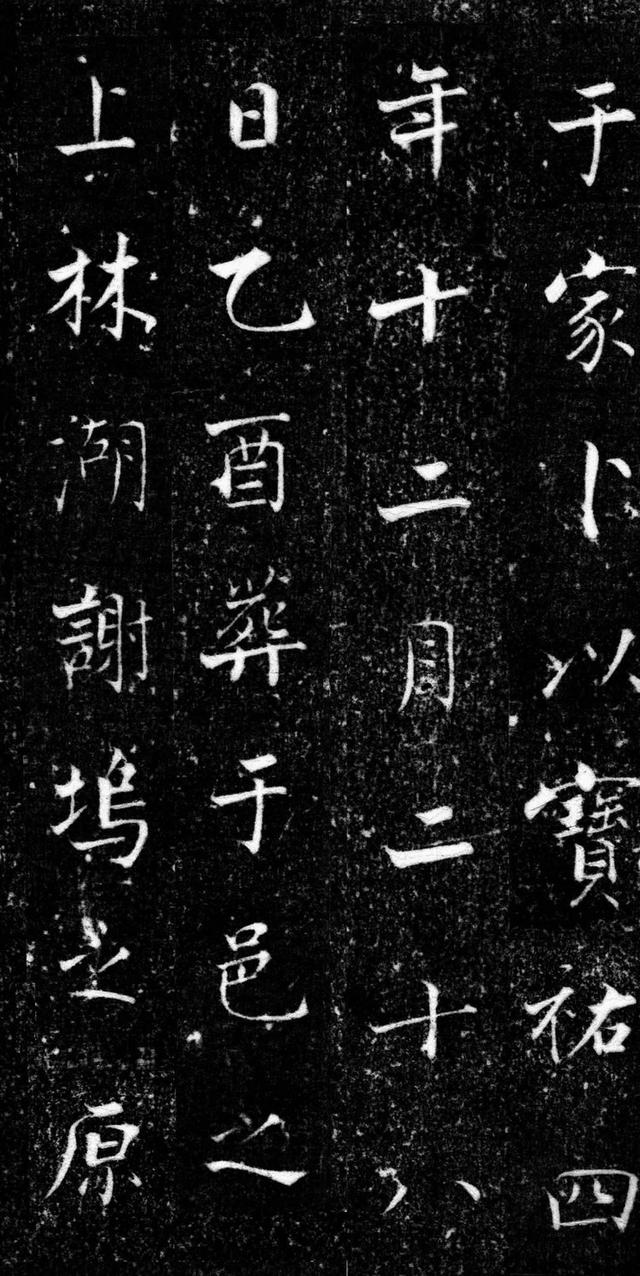 于家卜以寶祐四
年十二月二十八
日乙酉葬于邑之
上林湖謝塢之原